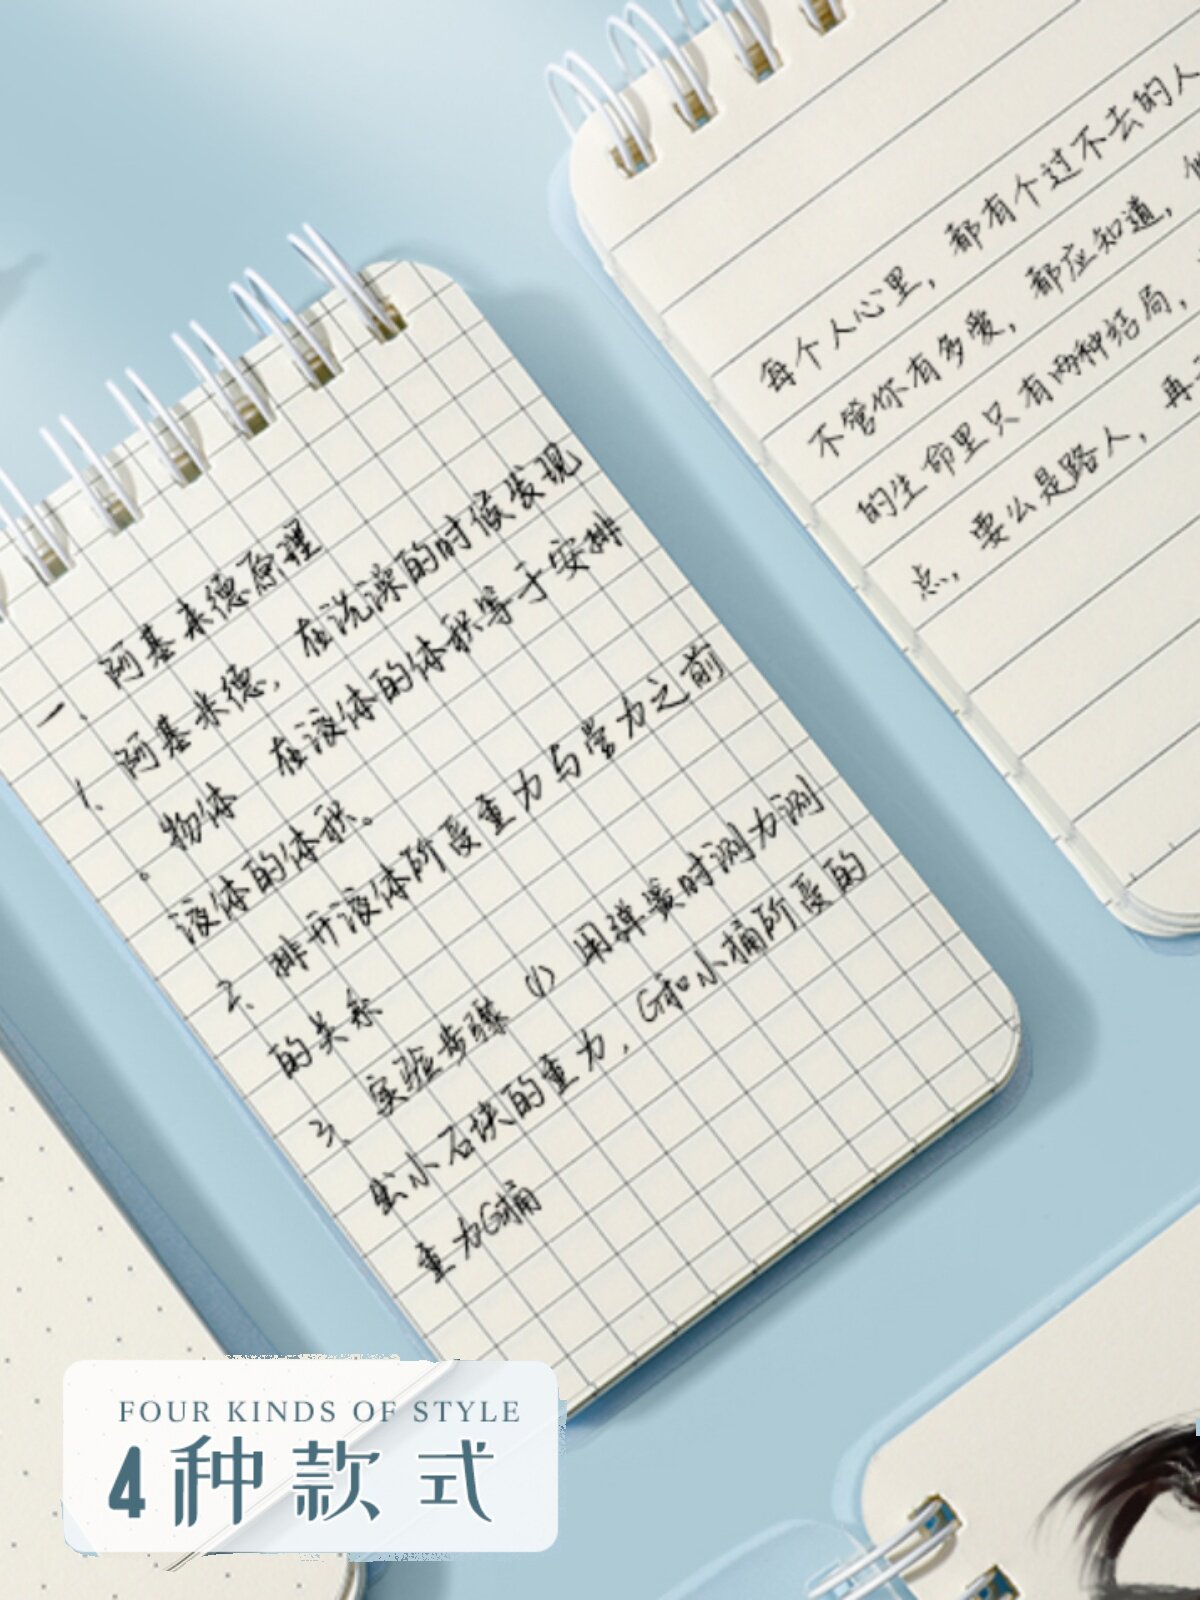 一、阿基米德原理
1、阿基米德，在洗澡的时候发现
物体 在液体的体积等于安排
。液体的体积。
2、排开液体阶受重力与掌力之前
的关系
3、实验步骤 (1) 用弹簧时测力测
出小石块的重力，G和小桶阶受的
重力G桶
每个人心里，都有个过不去的人
不管你有多爱，都应知道，
的生命里只有两种结局，
点，要么是路人，再
FOUR KINDS OF STYLE
4种款式